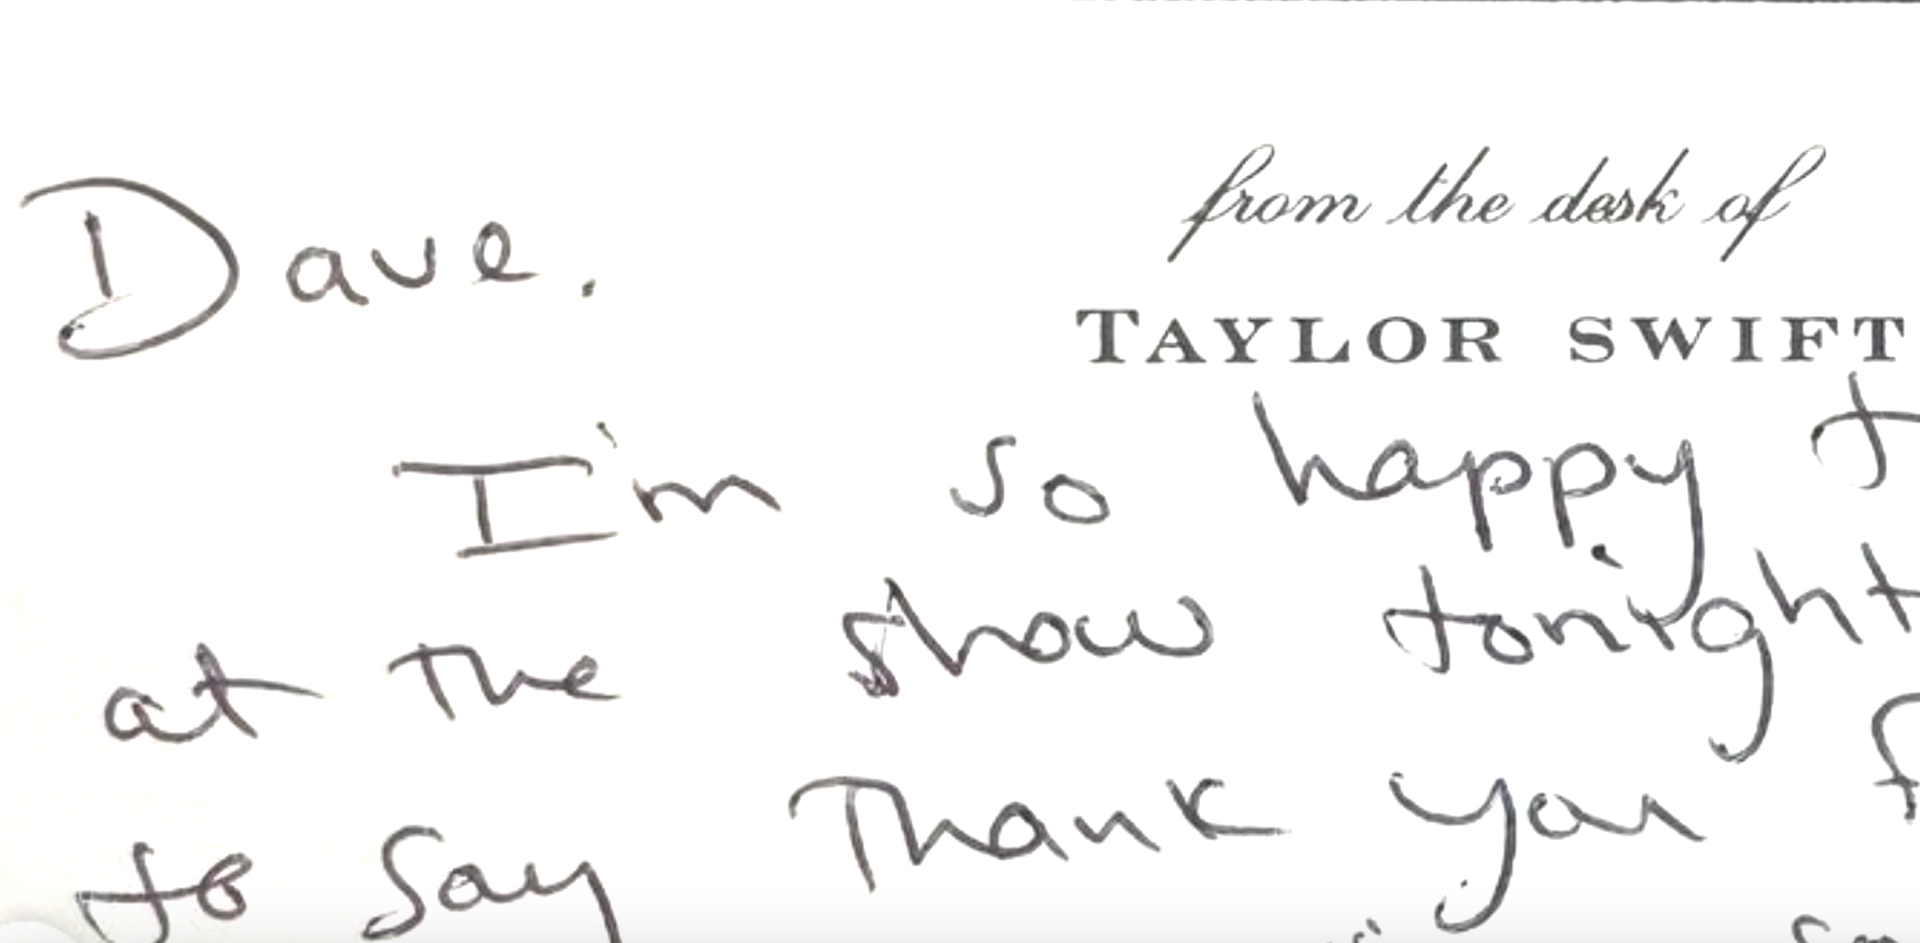 from the desk of
TAYLOR SWIFT
Dave.
I'm so happy t
at the show tonight
to say Thank you f